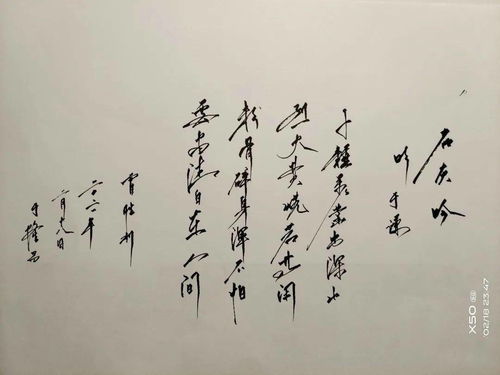 石灰吟
明 于谦
千锤万凿出深山
烈火焚烧若等闲
粉骨碎身浑不怕
要留清白在人间
二〇二一年
二月十八日
X50
'02/18 23:47